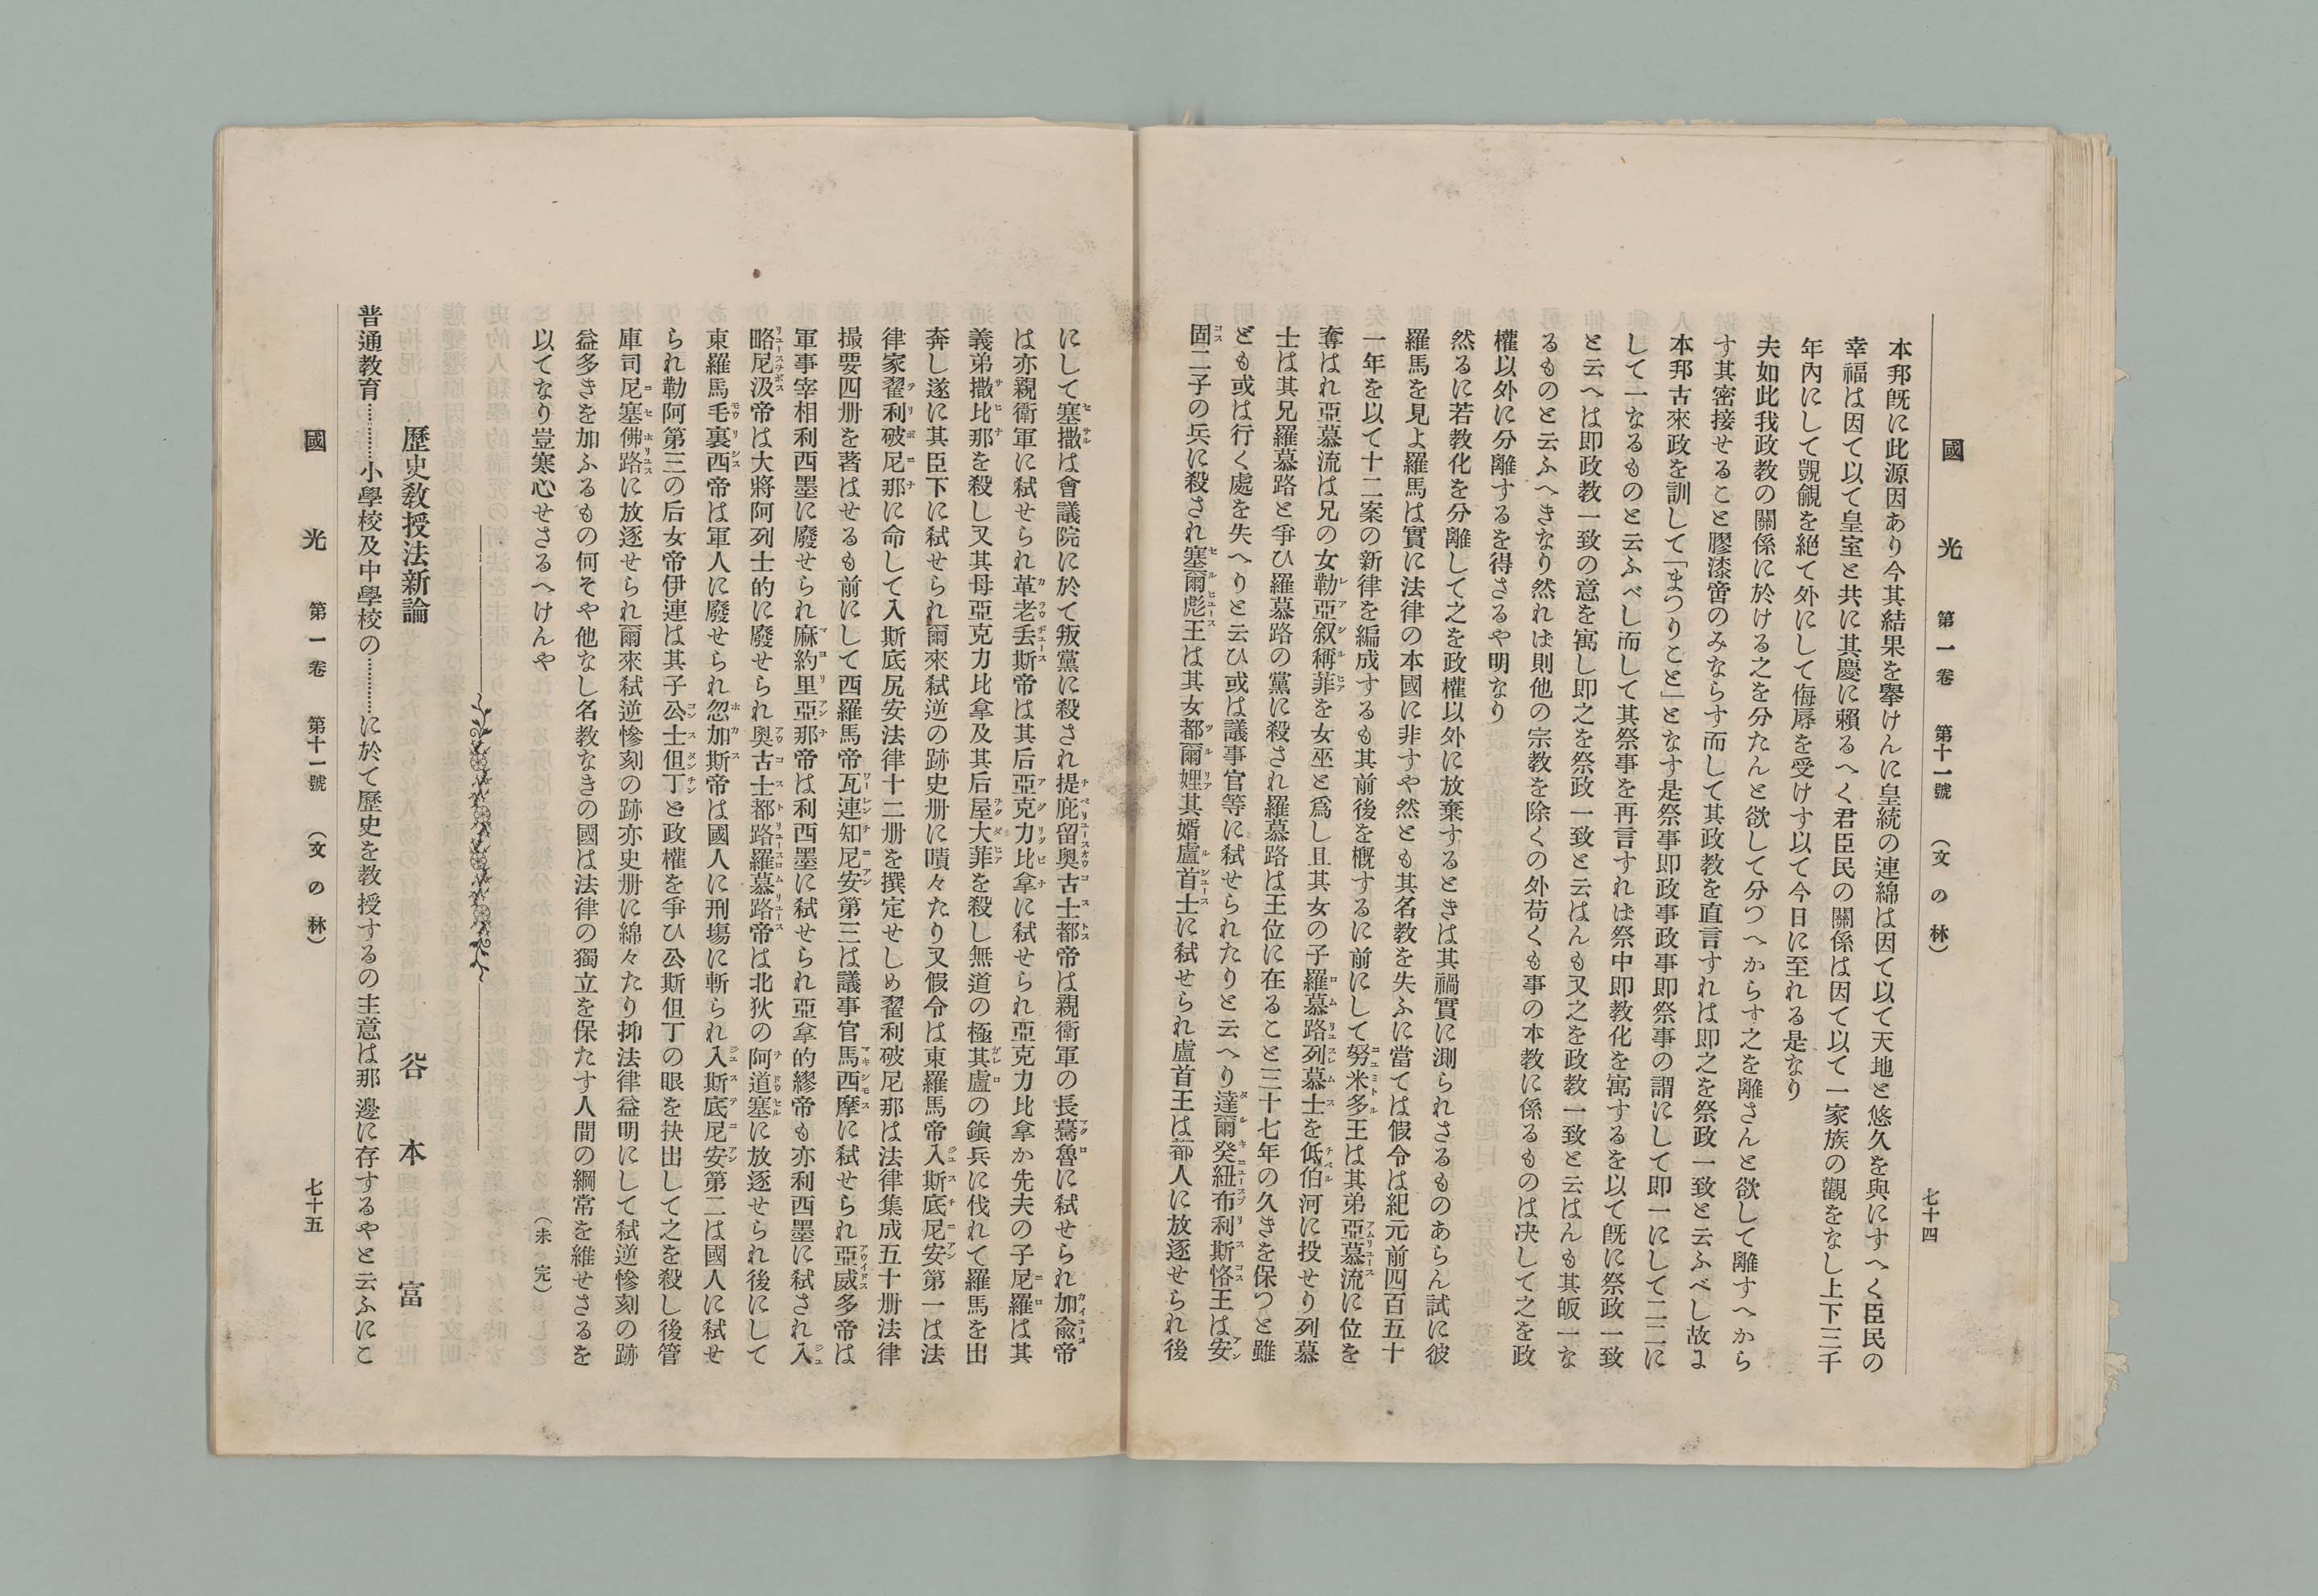 國光 第一卷 第十一號 （文の林） 七十四
本邦既に此源因あり今其結果を擧けんに皇統の連綿は因て以て天地と悠久を與にすへく臣民の
幸福は因て以て皇室と共に其慶に賴るへく君臣民の關係は因て以て一家族の觀をなし上下三千
年內にして覬覦を絕て外にして侮辱を受けす以て今日に至れる是なり
夫如此我政教の關係に於ける之を分たんと欲して分つへからす之を離さんと欲して離すへから
す其密接せること膠漆啻のみならす而して其政教を直言すれは即之を祭政一致と云ふべし故よ
本邦古來政を訓して「まつりこと」となす是祭事即政事政事即祭事の謂にして即一にして二二に
して一なるものと云ふべし而して其祭事を再言すれは祭中即教化を寓するを以て既に祭政一致
と云へは即政教一致の意を寓し即之を祭政一致と云はんも又之を政教一致と云はんも其皈一な
るものと云ふへきなり然れは則他の宗教を除くの外苟くも事の本教に係るものは决して之を政
權以外に分離するを得さるや明なり
然るに若教化を分離して之を政權以外に放棄するときは其禍實に測られさるものあらん試に彼
羅馬を見よ羅馬は實に法律の本國に非すや然とも其名教を失ふに當ては假令は紀元前四百五十
一年を以て十二案の新律を編成するも其前後を概するに前にして努米多王は其弟亞慕流に位を
奪はれ亞慕流は兄の女勒亞叙稱菲を女巫と爲し且其女の子羅慕路列慕士を低伯河に投せり列慕
士は其兄羅慕路と爭ひ羅慕路の黨に殺され羅慕路は王位に在ること三十七年の久きを保つと雖
ども或は行く處を失へりと云ひ或は議事官等に弑せられたりと云へり達爾癸紐布利斯恪王は安
固二子の兵に殺され塞爾彪王は其女都爾娌其婿盧首士に弑せられ盧首王は都人に放逐せられ後
にして塞撒は會議院に於て叛黨に殺され提庇留奧古士都帝は親衛軍の長蕎魯に弑せられ加兪帝
は亦親衛軍に弑せられ革老丢斯帝は其后亞克力比拿に弑せられ亞克力比拿か先夫の子尼羅は其
義弟撒比那を殺し又其母亞克力比拿及其后屋大菲を殺し無道の極其盧の鎭兵に伐れて羅馬を出
奔し遂に其臣下に弑せられ爾來弑逆の跡史册に嘖々たり又假令は東羅馬帝入斯底尼安第一は法
律家翟利破尼那に命して入斯底尻安法律十二册を撰定せしめ翟利破尼那は法律集成五十册法律
撮要四册を著はせるも前にして西羅馬帝瓦連知尼安第三は議事官馬西摩に弑せられ亞威多帝は
軍事宰相利西墨に廢せられ麻約里亞那帝は利西墨に弑せられ亞拿的繆帝も亦利西墨に弑され入
略尼汲帝は大將阿列士的に廢せられ奧古士都路羅慕路帝は北狄の阿道塞に放逐せられ後にして
東羅馬毛裏西帝は軍人に廢せられ忽加斯帝は國人に刑塲に斬られ入斯底尼安第二は國人に弑せ
られ勒阿第三の后女帝伊連は其子公士但丁と政權を爭ひ公斯但丁の眼を抉出して之を殺し後管
庫司尼塞佛路に放逐せられ爾來弑逆慘刻の跡亦史册に綿々たり抑法律益明にして弑逆慘刻の跡
益多きを加ふるもの何そや他なし名教なきの國は法律の獨立を保たす人間の綱常を維せさるを
以てなり豈寒心せさるへけんや （未完）
歷史教授法新論 谷本富
普通教育…………小學校及中學校の…………に於て歷史を教授するの主意は那邊に存するやと云ふにこ
國光 第一卷 第十一號 （文の林） 七十五